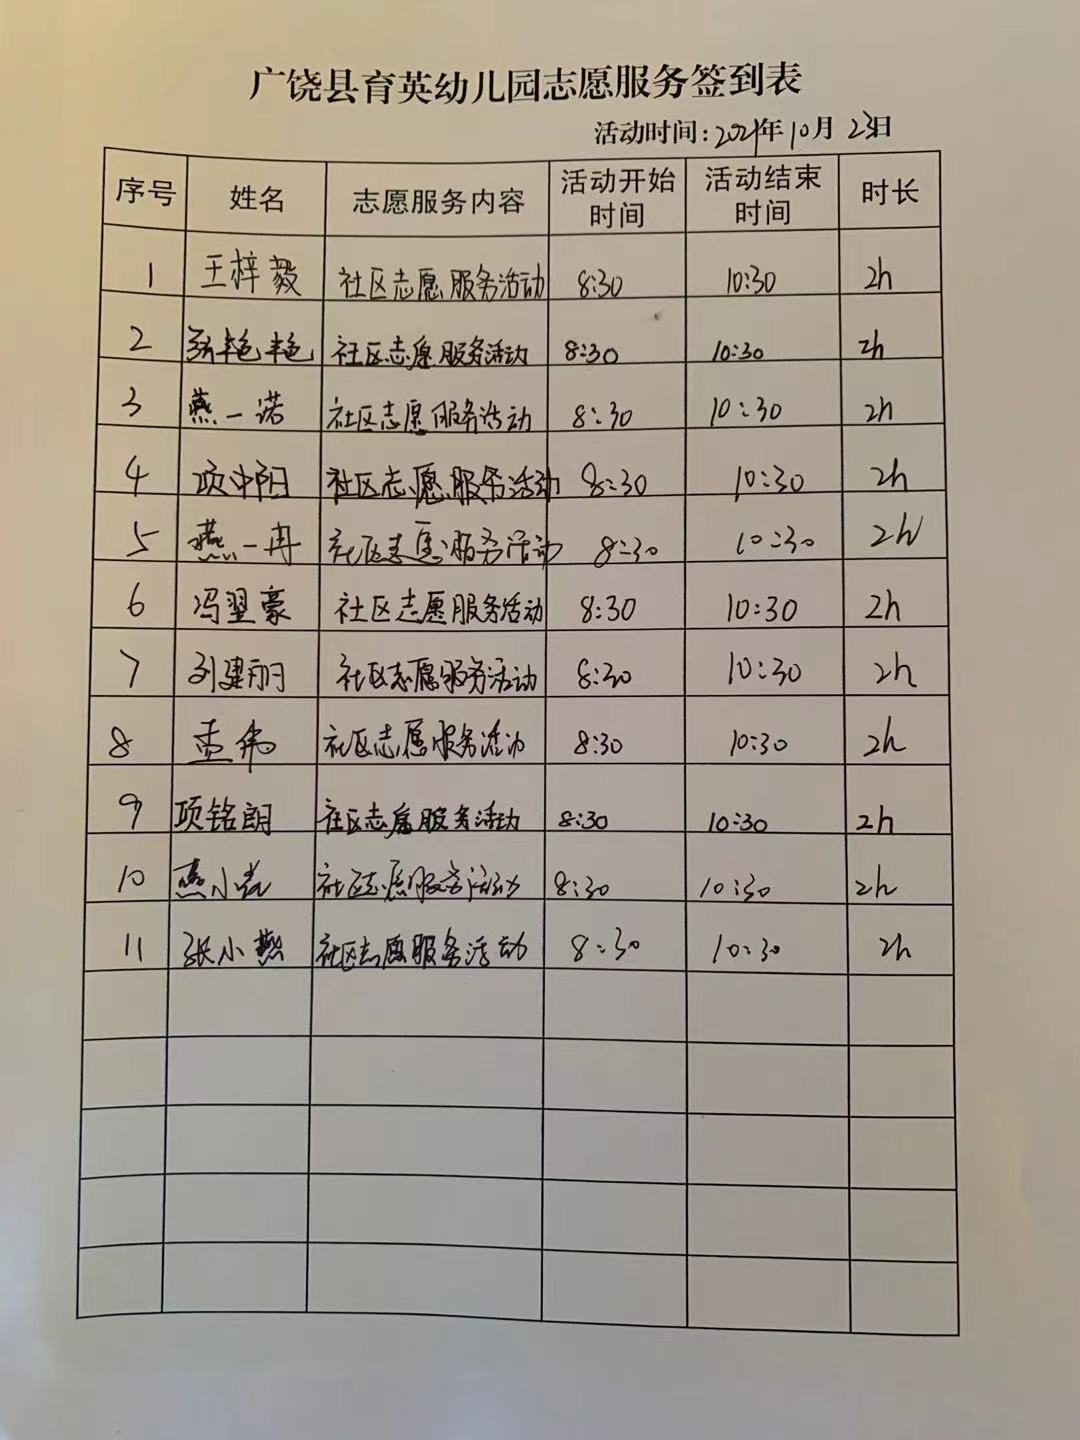 广饶县育英幼儿园志愿服务签到表
活动时间：2021年10月23日
序号 姓名 志愿服务内容 活动开始时间 活动结束时间 时长
1 王梓毅 社区志愿服务活动 8:30 10:30 2h
2 艳艳 社区志愿服务活动 8:30 10:30 2h
3 燕一诺 社区志愿服务活动 8:30 10:30 2h
4 项中阳 社区志愿服务活动 8:30 10:30 2h
5 燕一冉 社区志愿服务活动 8:30 10:30 2h
6 冯翌豪 社区志愿服务活动 8:30 10:30 2h
7 刘建丽 社区志愿服务活动 8:30 10:30 2h
8 孟伟 社区志愿服务活动 8:30 10:30 2h
9 项铭朗 社区志愿服务活动 8:30 10:30 2h
10 燕小 社区志愿服务活动 8:30 10:30 2h
11 张小燕 社区志愿服务活动 8:30 10:30 2h